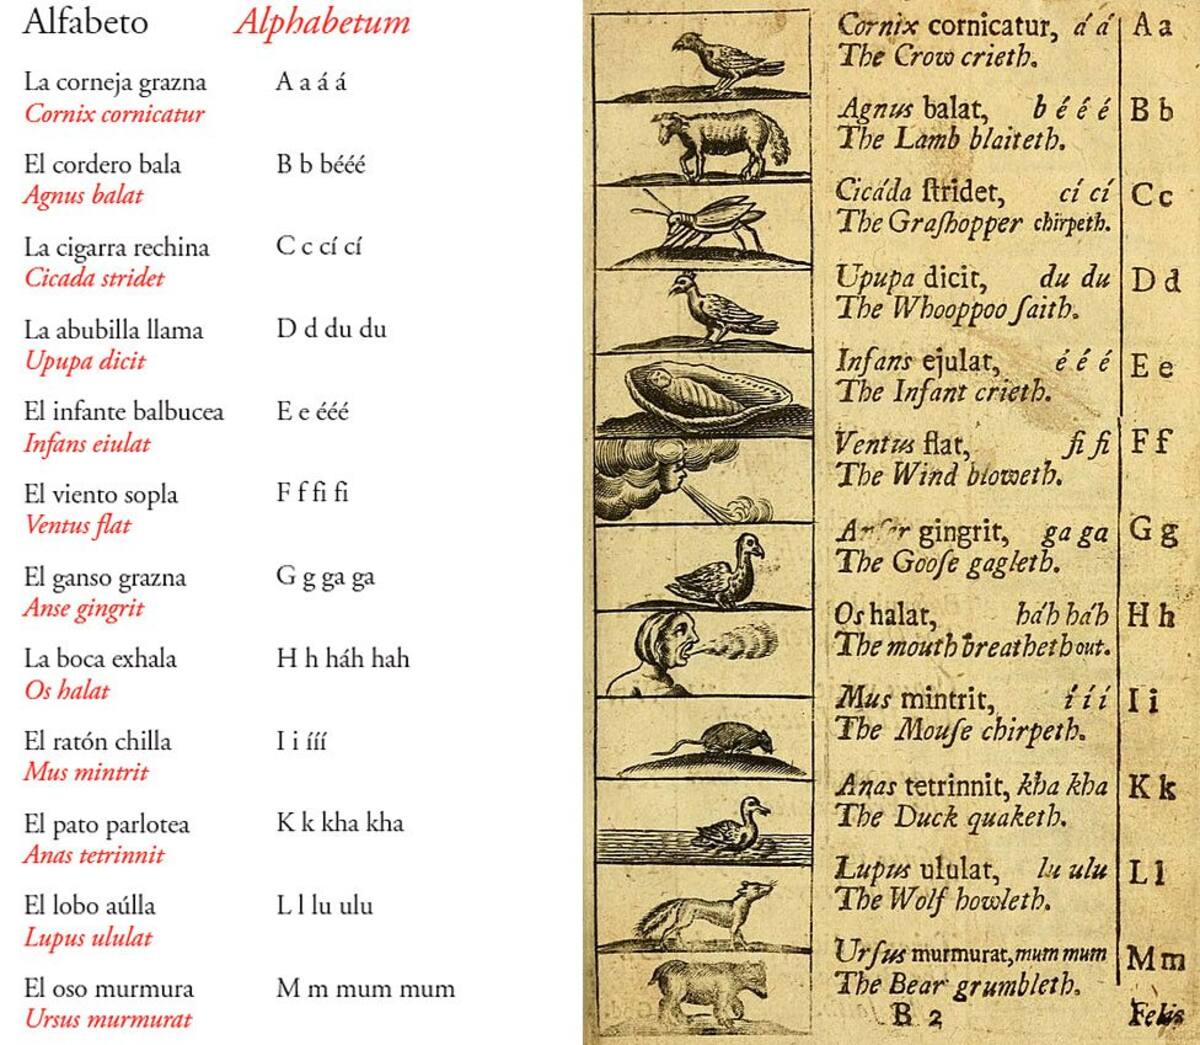 Alfabeto Alphabetum
La corneja grazna A a á á
Cornix cornicatur
El cordero bala B b bééé
Agnus balat
La cigarra rechina C c cí cí
Cicada stridet
La abubilla llama D d du du
Upupa dicit
El infante balbucea E e ééé
Infans eiulat
El viento sopla F f fi fi
Ventus flat
El ganso grazna G g ga ga
Anse gingrit
La boca exhala H h háh hah
Os halat
El ratón chilla I i ííí
Mus mintrit
El pato parlotea K k kha kha
Anas tetrinnit
El lobo aúlla L l lu ulu
Lupus ululat
El oso murmura M m mum mum
Ursus murmurat
Cornix cornicatur, á á A a
The Crow crieth.
Agnus balat, b é é é B b
The Lamb blaiteth.
Cicáda ſtridet, cí cí C c
The Graſhopper chirpeth.
Upupa dicit, du du D d
The Whooppoo ſaith.
Infans ejulat, é é é E e
The Infant crieth.
Ventus flat, fi fi F f
The Wind bloweth.
gingrit, ga ga G g
The Gooſe gagleth.
Os halat, háh háh H h
The mouth breatheth out.
Mus mintrit, í í í I i
The Mouſe chirpeth.
Anas tetrinnit, kha kha K k
The Duck quaketh.
Lupus ululat, lu ulu L l
The Wolf howleth.
Urſus murmurat, mum mum M m
The Bear grumbleth.
B 2 Felis